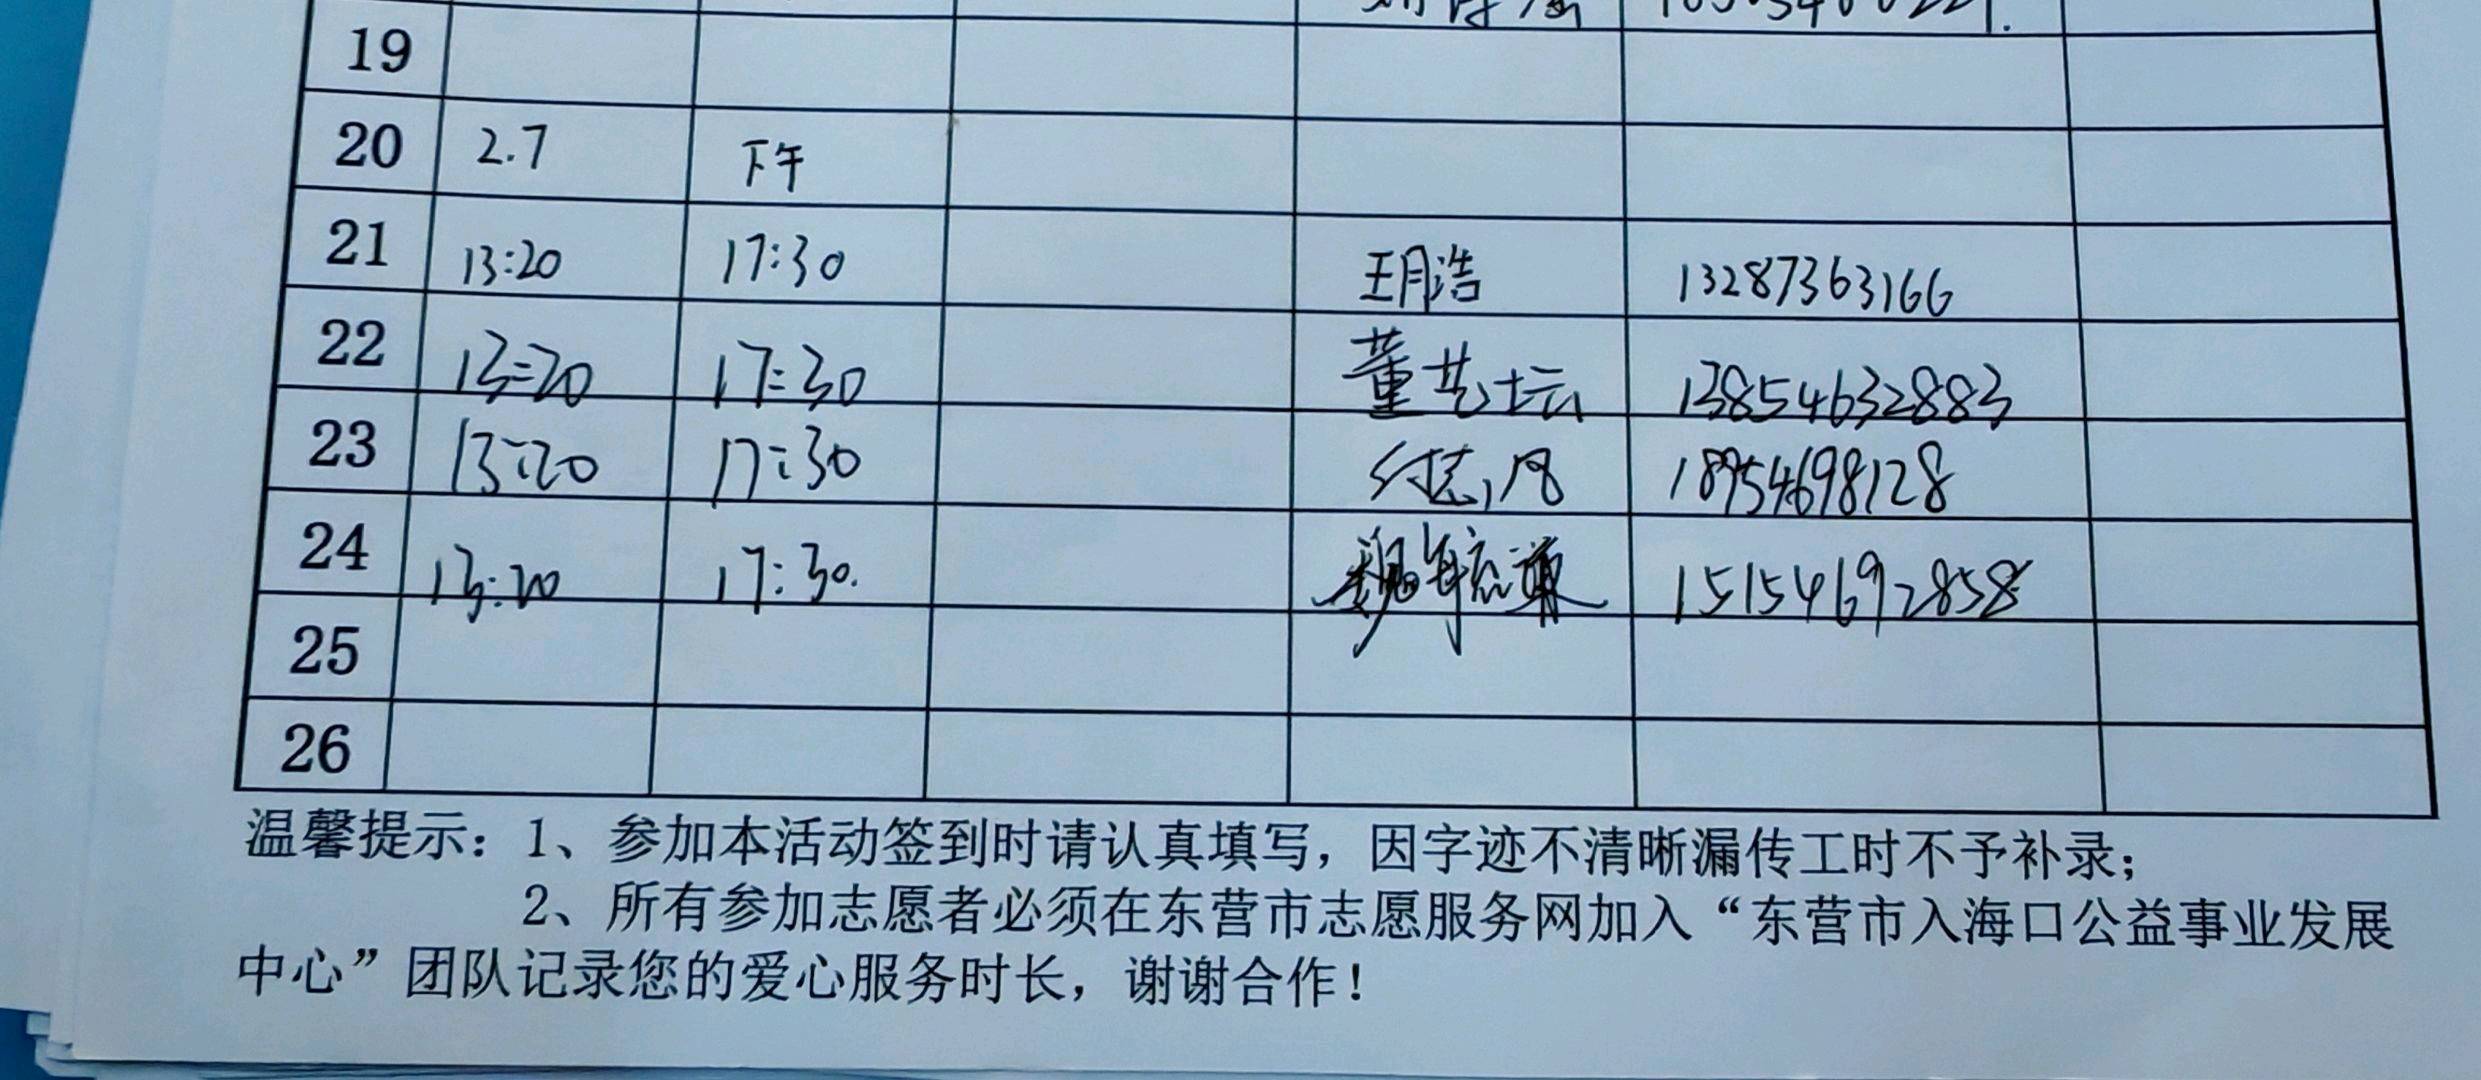 19
20 2.7 下午
21 13:20 17:30 王月浩 13287363166
22 13:20 17:30 董艺坛 13854632883
23 13:20 17:30 18954698128
24 13:20 17:30. 魏 15154692858
25
26
温馨提示：1、参加本活动签到时请认真填写，因字迹不清晰漏传工时不予补录；
2、所有参加志愿者必须在东营市志愿服务网加入“东营市入海口公益事业发展
中心”团队记录您的爱心服务时长，谢谢合作！